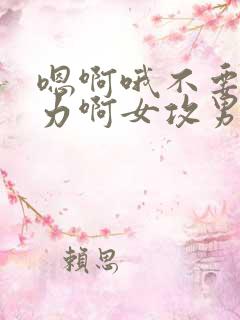 嗯啊哦不要
力啊女攻男
賴思